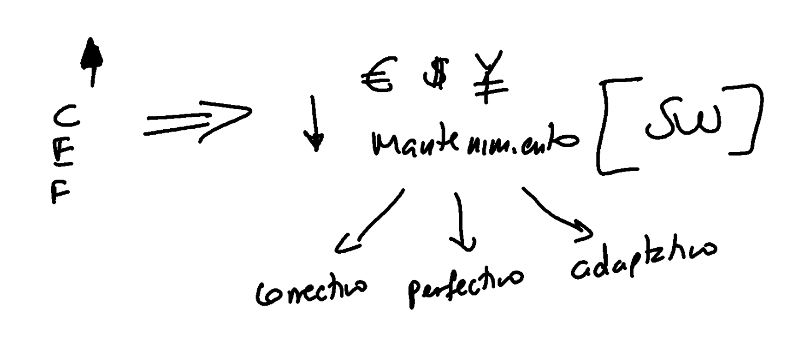 C
E
F
€ $ ¥
Mantenimiento [SW]
Correctivo perfectivo adaptativo